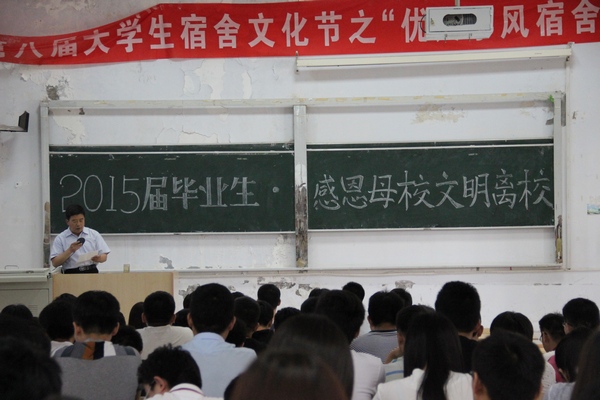 八届大学生宿舍文化节之“优 风宿舍
2015届毕业生·感恩母校文明离校